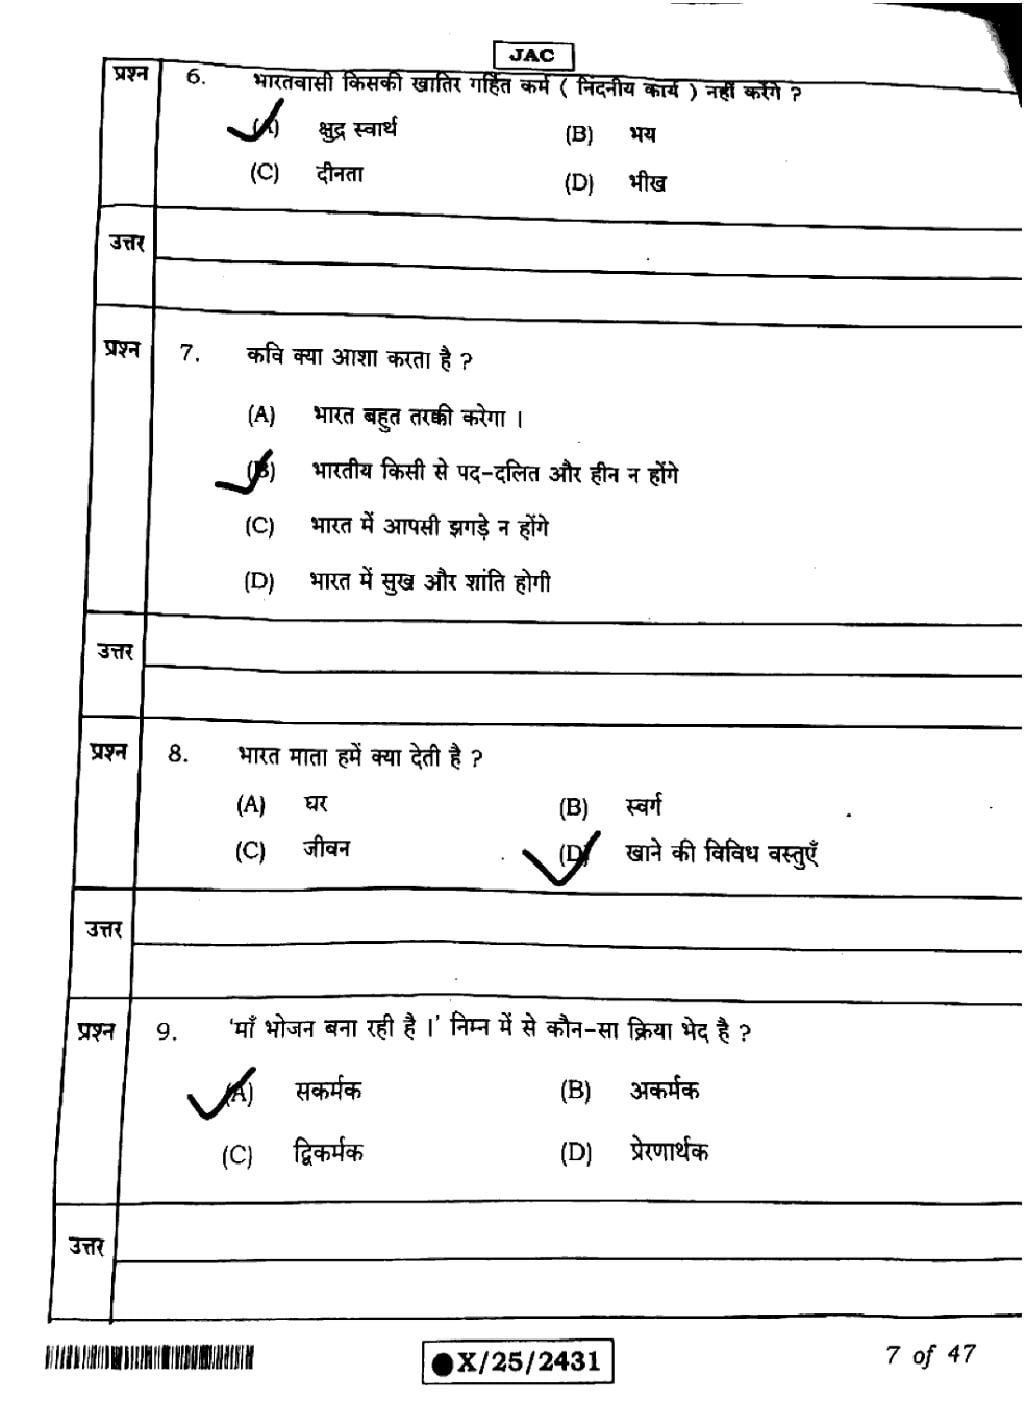 JAC
प्रश्न 6. भारतवासी किसकी खातिर गर्हित कर्म ( निंदनीय कार्य ) नहीं करेंगे ?
(A) क्षुद्र स्वार्थ (B) भय
(C) दीनता (D) भीख
उत्तर
प्रश्न 7. कवि क्या आशा करता है ?
(A) भारत बहुत तरक्की करेगा ।
(B) भारतीय किसी से पद-दलित और हीन न होंगे
(C) भारत में आपसी झगड़े न होंगे
(D) भारत में सुख और शांति होगी
उत्तर
प्रश्न 8. भारत माता हमें क्या देती है ?
(A) घर (B) स्वर्ग
(C) जीवन (D) खाने की विविध वस्तुएँ
उत्तर
प्रश्न 9. 'माँ भोजन बना रही है ।' निम्न में से कौन-सा क्रिया भेद है ?
(A) सकर्मक (B) अकर्मक
(C) द्विकर्मक (D) प्रेरणार्थक
उत्तर
X/25/2431 7 of 47